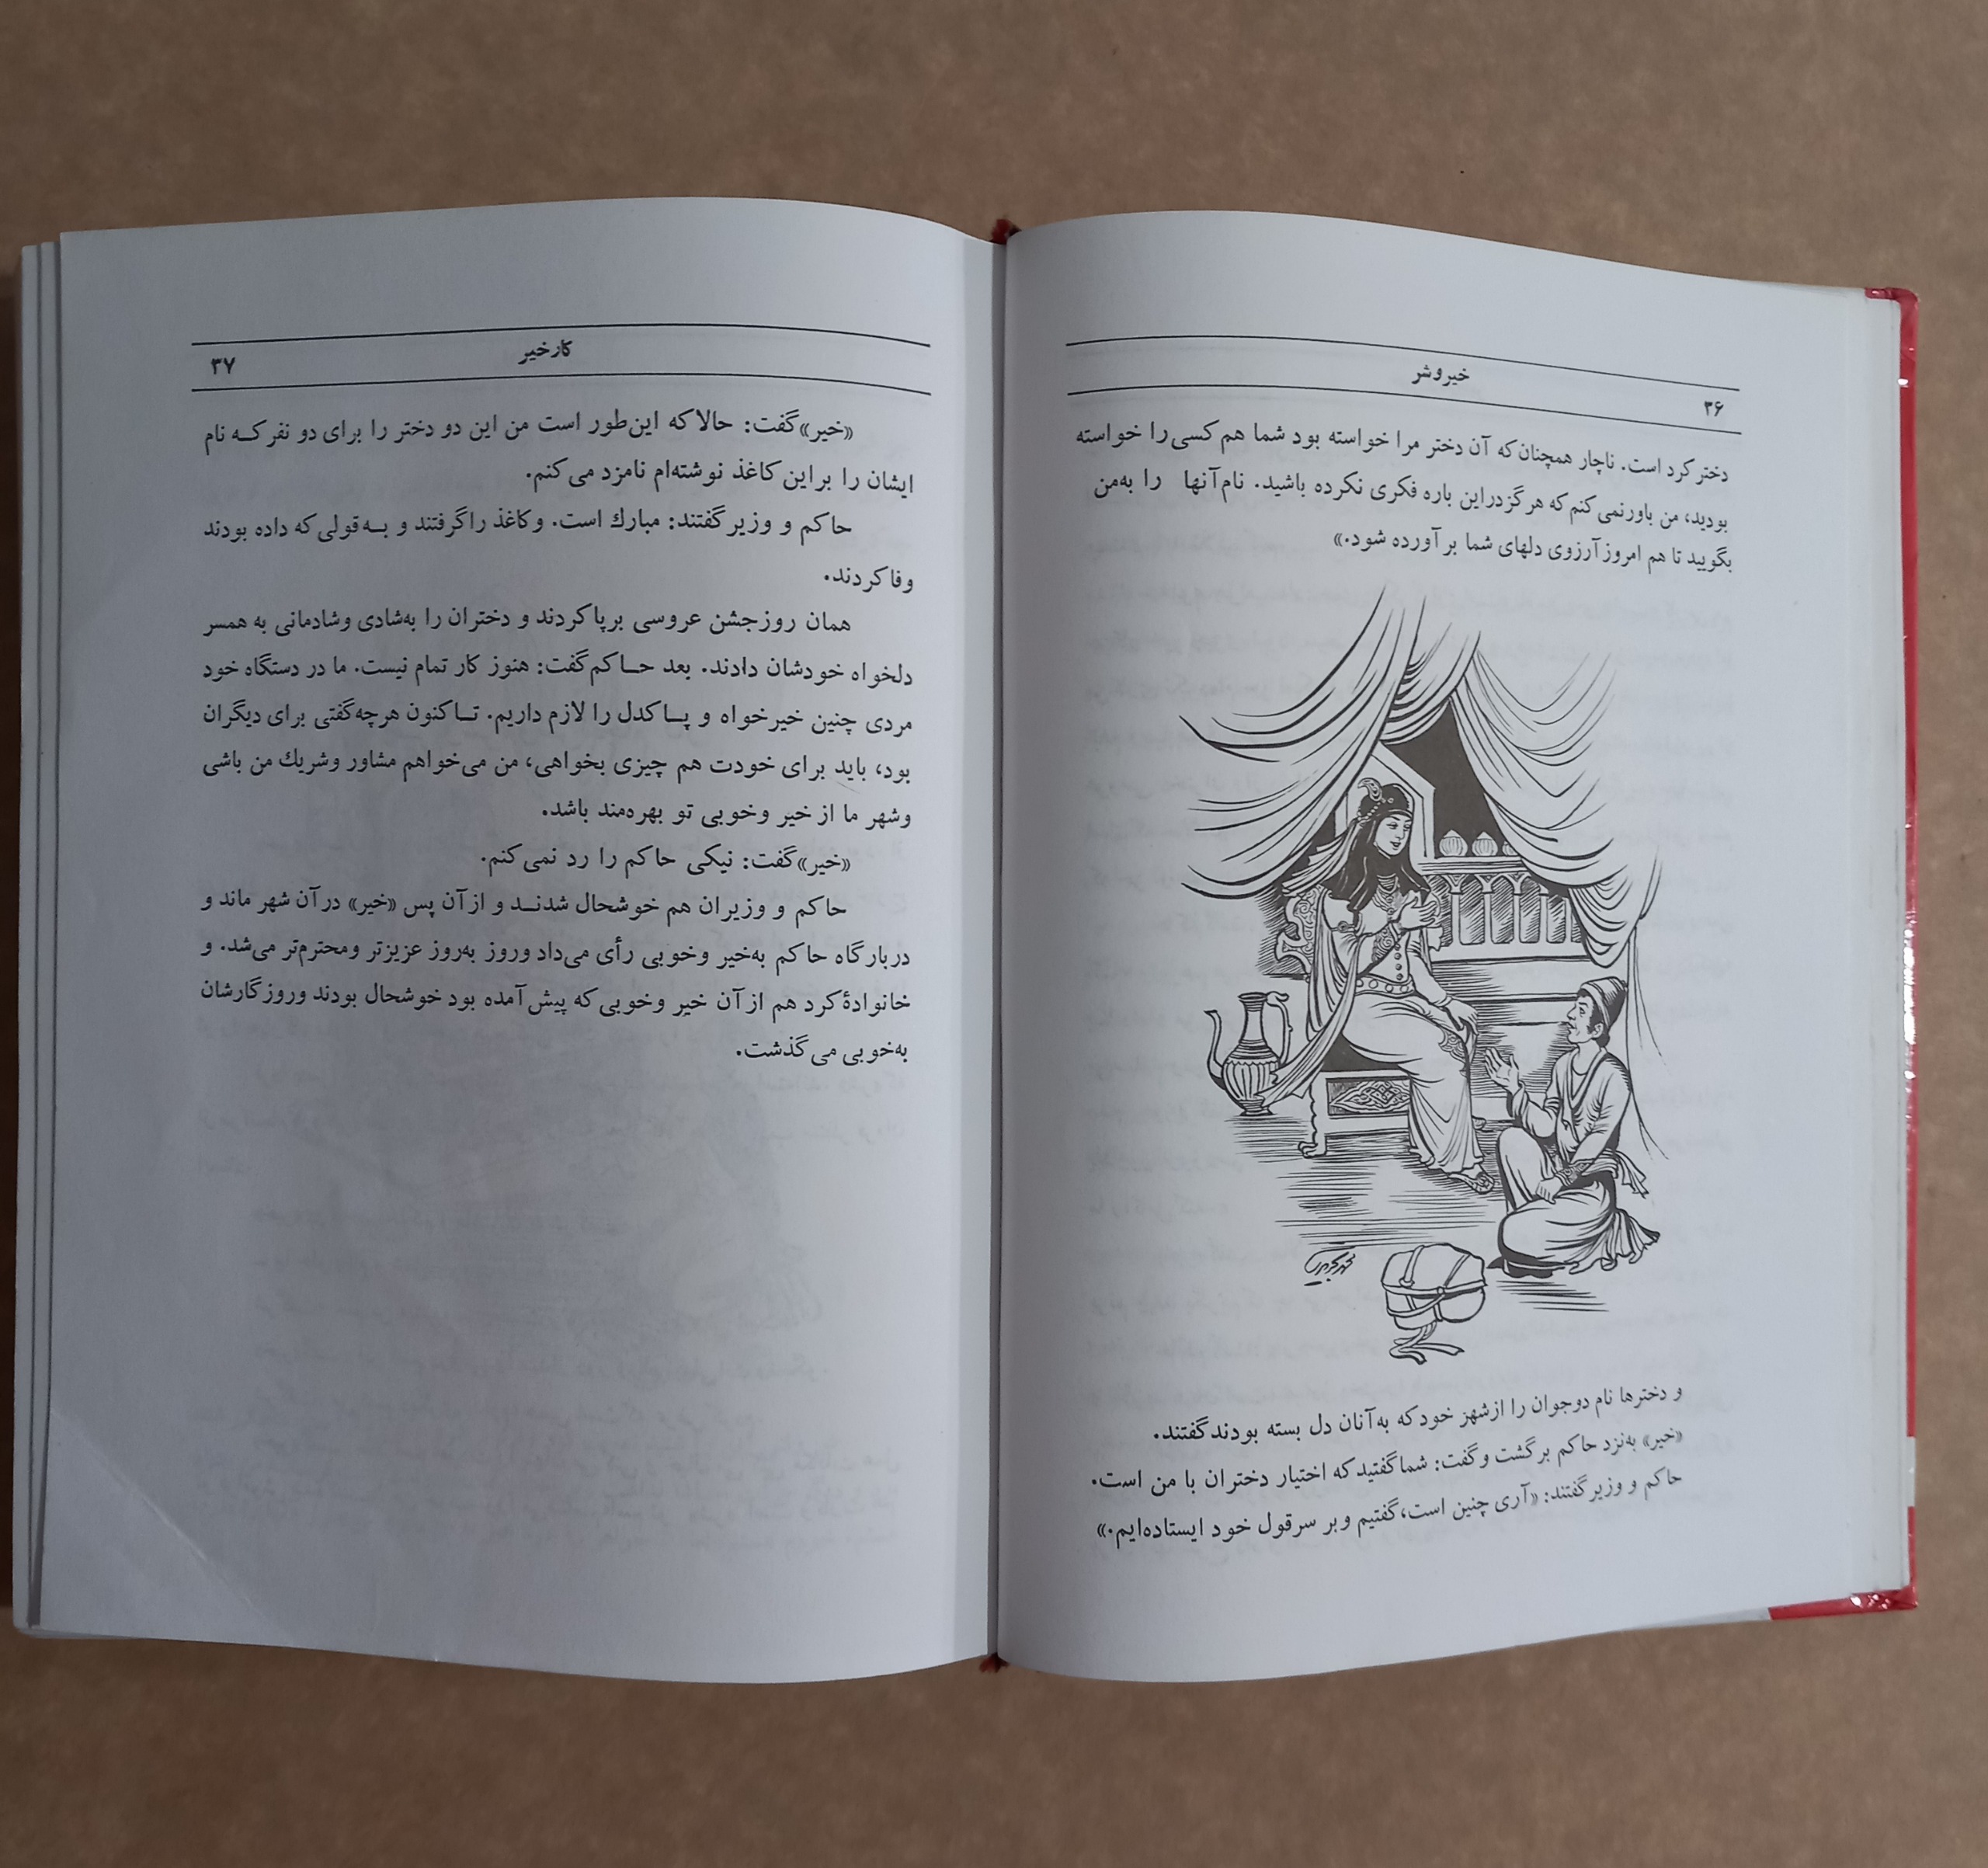 خیر و شر
۳۶
دختر کرد است. ناچار همچنان که آن دختر مرا خواسته بود شما هم کسی را خواسته
بودید، من باور نمی‌کنم که هرگز در این باره فکری نکرده باشید. نام آنها را به‌من
بگویید تا هم امروز آرزوی دلهای شما بر آورده شود.»
و دخترها نام دو جوان را از شهر خود که به‌آنان دل بسته بودند گفتند.
«خیر» به‌نزد حاکم برگشت و گفت: شما گفتید که اختیار دختران با من است.
حاکم و وزیر گفتند: «آری چنین است، گفتیم و بر سر قول خود ایستاده‌ایم.»
کار خیر
۳۷
«خیر» گفت: حالا که این‌طور است من این دو دختر را برای دو نفر کــه نام
ایشان را بر این کاغذ نوشته‌ام نامزد می‌کنم.
حاکم و وزیر گفتند: مبارك است. و کاغذ را گرفتند و بــه قولی که داده بودند
وفا کردند.
همان روز جشن عروسی برپا کردند و دختران را به‌شادی و شادمانی به همسر
دلخواه خودشان دادند. بعد حــاکم گفت: هنوز کار تمام نیست. ما در دستگاه خود
مردی چنین خیرخواه و پــاکدل را لازم داریم. تــاکنون هرچه گفتی برای دیگران
بود، باید برای خودت هم چیزی بخواهی، من می‌خواهم مشاور و شریك من باشی
و شهر ما از خیر و خوبی تو بهره‌مند باشد.
«خیر» گفت: نیکی حاکم را رد نمی‌کنم.
حاکم و وزیران هم خوشحال شدنــد و از آن پس «خیر» در آن شهر ماند و
در بارگاه حاکم به‌خیر و خوبی رأی می‌داد و روز به‌روز عزیزتر و محترم‌تر می‌شد. و
خانوادهٔ کرد هم از آن خیر و خوبی که پیش آمده بود خوشحال بودند و روزگارشان
به‌خوبی می‌گذشت.